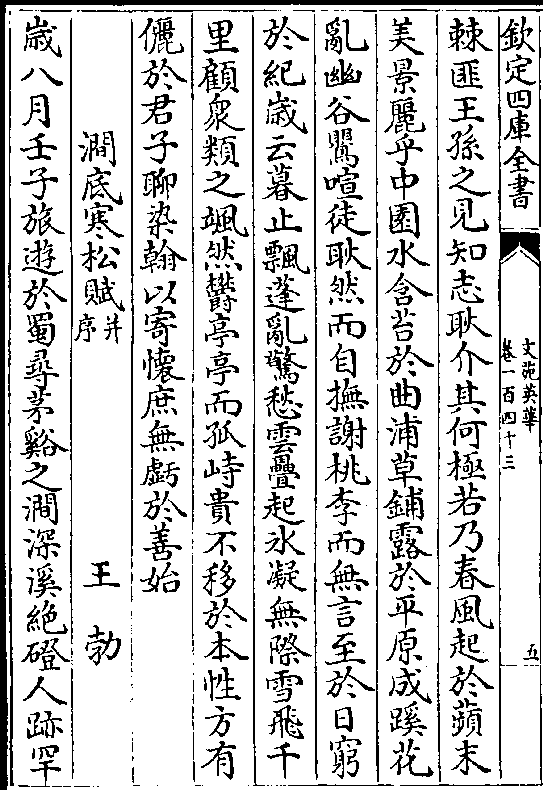 欽定四庫全書
文苑英華
卷一百四十三
五
棘匪王孫之見知志耿介其何極若乃春風起於蘋末
美景麗乎中園水含苔於曲浦草鋪露於平原成蹊花
亂幽谷鸎喧徒耿然而自撫謝桃李而無言至於日窮
於紀嵗云暮止飄蓬亂驚愁雲疊起氷凝無際雪飛千
里顧衆類之颯然欝亭亭而孤峙貴不移於本性方有
儷於君子聊染翰以寄懷庶無虧於善始
澗底寒松賦并序
王勃
嵗八月壬子旅遊於蜀尋茅谿之澗深溪絶磴人跡罕